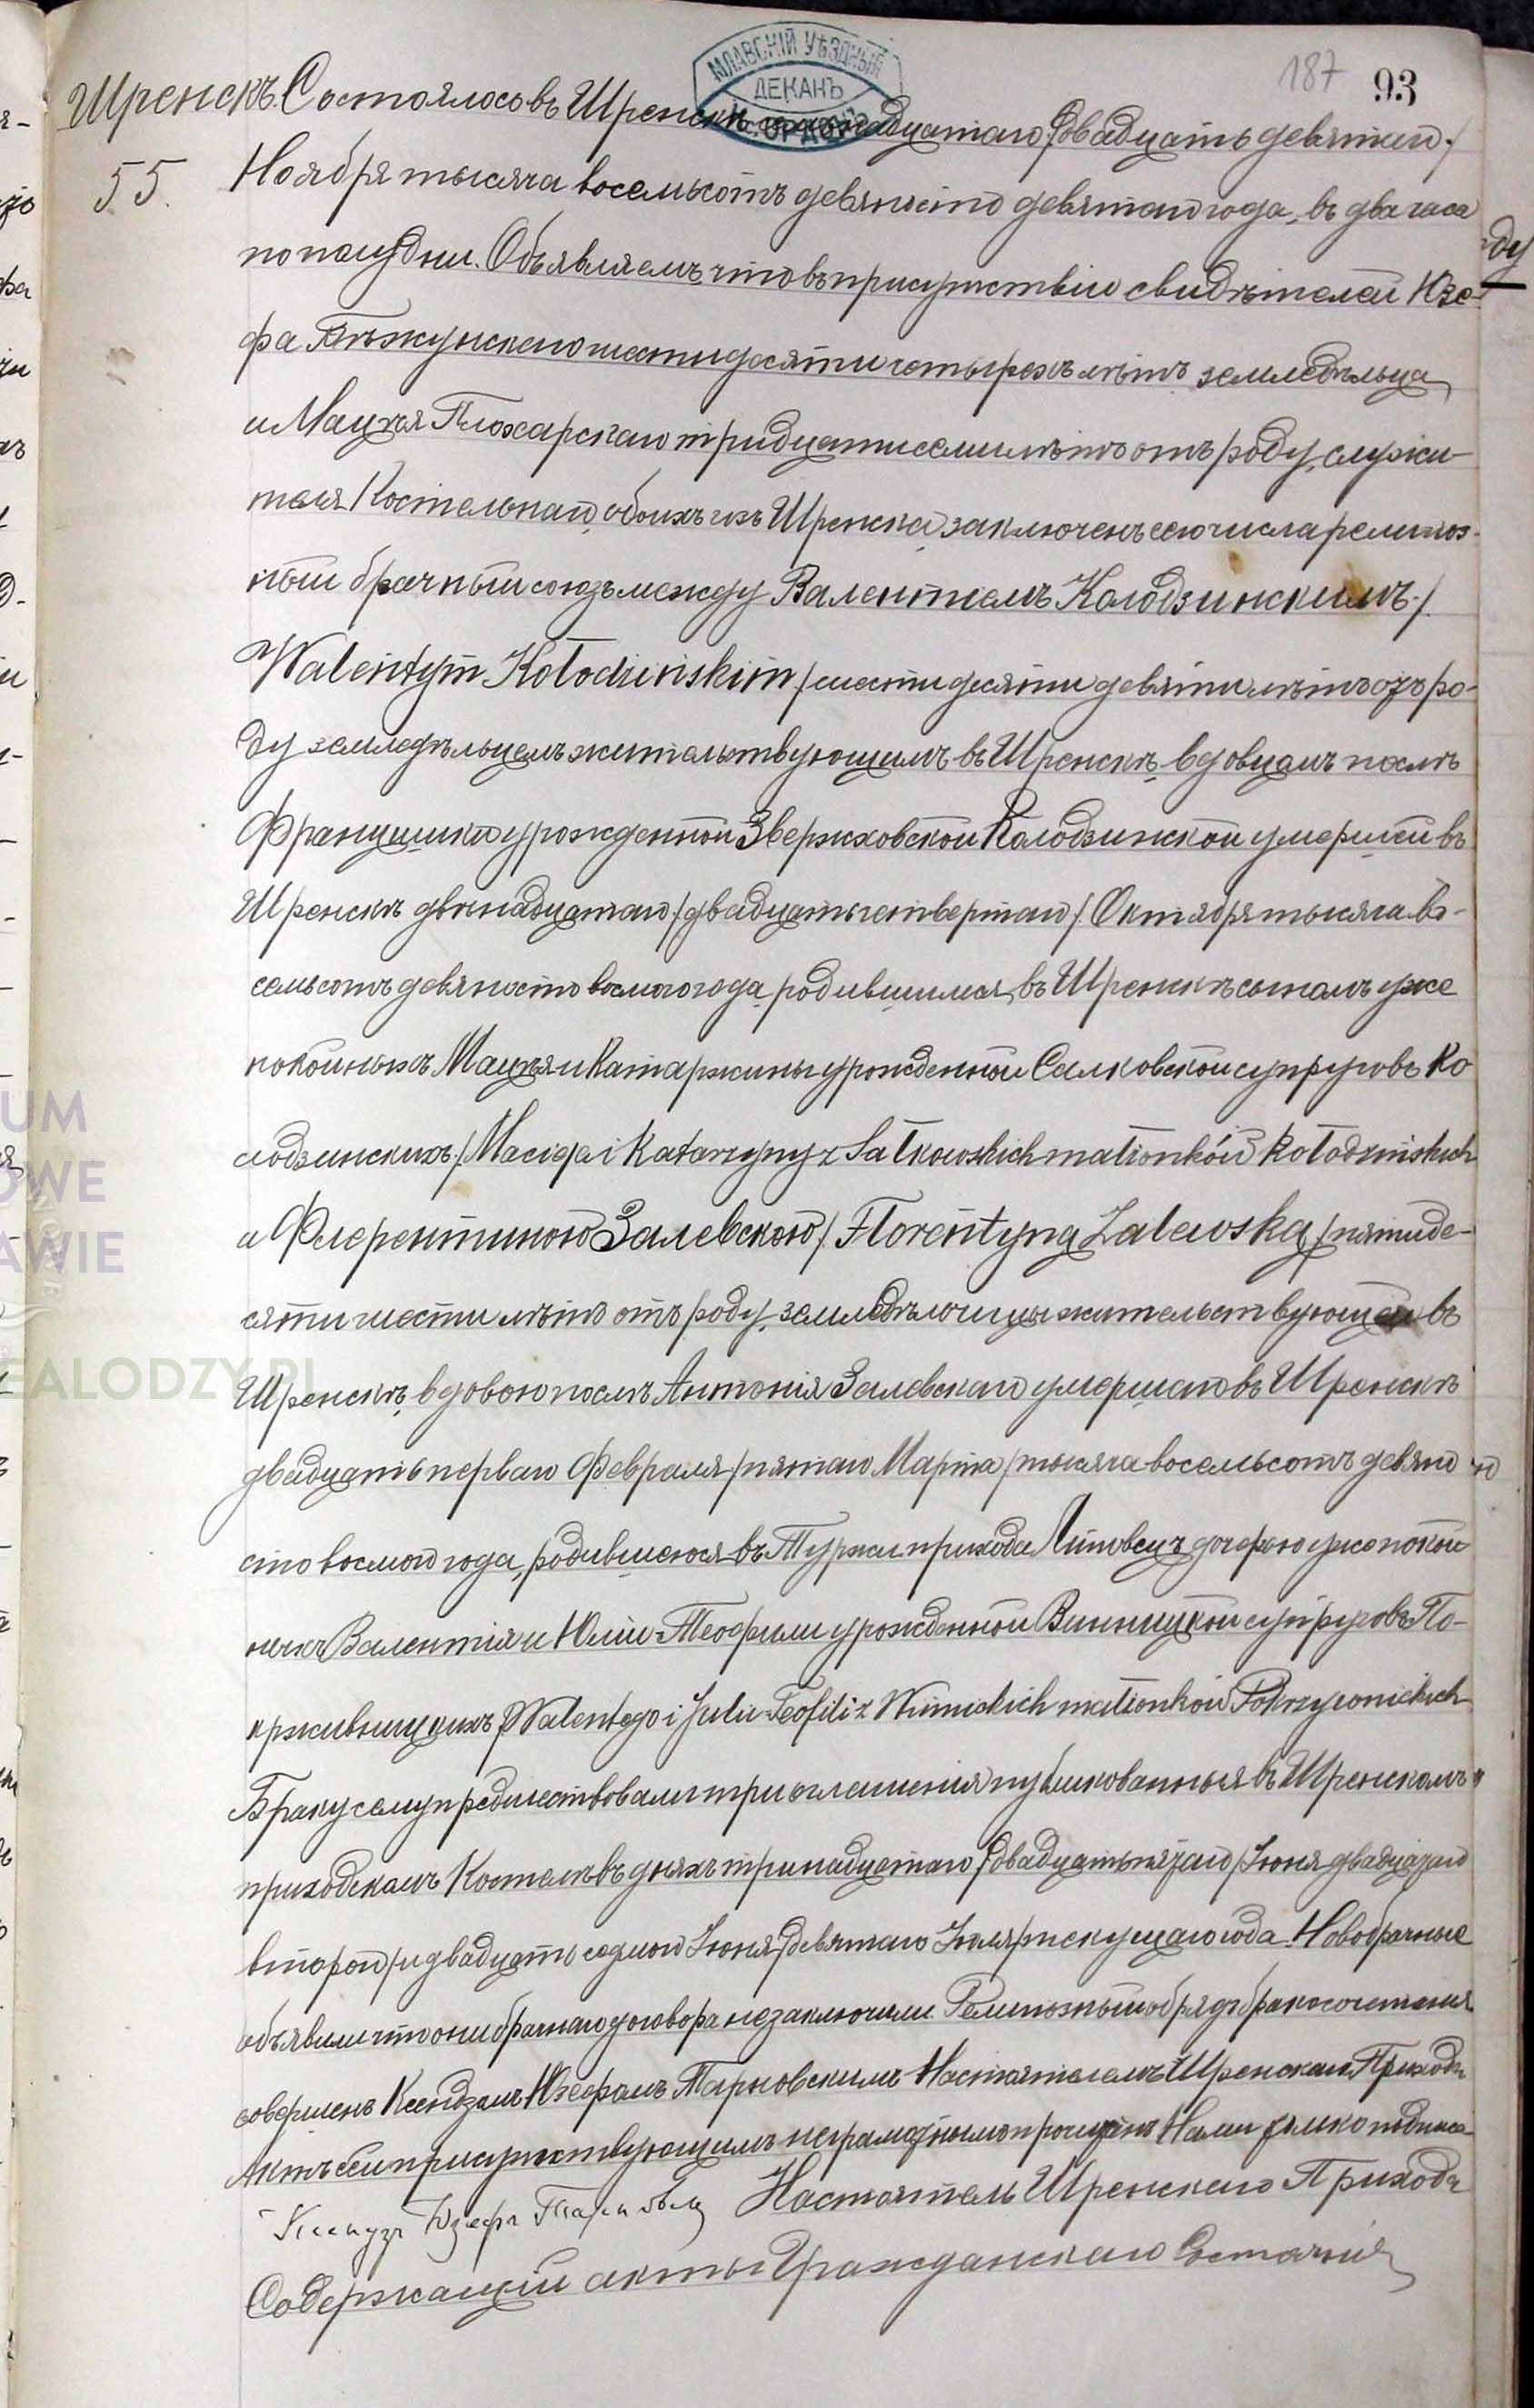 187 93
МЛАВСКІЙ УѢЗДНЫЙ
ДЕКАНЪ
Шренскъ. Состоялось въ Шренскѣ надцатаго /двадцать девятаго/
55. Ноября тысяча восемьсотъ девяносто девятаго года, въ два часа
по полудни. Объявляемъ что въ присутствіи свидѣтелей Юзе-
фа Бѣжунскаго шестидесяти четырехъ лѣтъ земледѣльца
и Мацѣя Пložарскаго тридцати семи лѣтъ отъ роду, служи-
теля Костельнаго, обоихъ изъ Шренска, заключенъ сего числа религіоз-
ный брачный союзъ между Валентіемъ Колодзинскимъ /
Walentym Kołodzińskim / шестидесяти девяти лѣтъ отъ ро-
ду земледѣльцемъ жительствующимъ въ Шренскѣ, вдовцамъ послѣ
Францишки урожденной Звержховской Колодзинской умершей въ
Шренскѣ двѣнадцатаго /двадцать четвертаго/ Октября тысяча во-
семьсотъ девяносто восмого года, родившимся въ Шренскѣ сыномъ уже
покойныхъ Мацѣя и Катаржины урожденной Салковской супруговъ Ко
лодзинскихъ / Macieja i Katarzyny z Sałkowskich małżonków Kołodzińskich
и Флерентиною Залевскою / Florentyną Zalewską / пятиде-
сяти шести лѣтъ отъ роду, земледѣлицы жительствующей въ
Шренскѣ, вдовою послѣ Антонія Залевскаго умершаго въ Шренскѣ
двадцать перваго Февраля /пятаго Марта/ тысяча восемьсотъ девяно
сто восмого года, родившеюся въ Туржи прихода Липовецъ дочерью уже покой
ныхъ Валентія и Юліи-Теофили урожденной Винницкой супруговъ По-
крживницкихъ / Walentego i Julii-Teofili z Winnickich małżonków Pokrzywnickich
Браку сему предшествовали три оглашенія публикованныя въ Шренскомъ
приходскомъ Костелѣ въ дняхъ тринадцатаго /двадцать пятаго/ Іюня двадцатаго
второго /и двадцать седмого Іюня /девятаго Іюля/ текущаго года. Новобрачные
объявили что они брачнаго договора не заключили. Религіозный обрядъ бракосочетанія
совершенъ Ксендзомъ Юзефомъ Тарновскимъ Настоятелемъ Шренскаго Прихода
Актъ сей присутствующимъ неграмотнымъ прочитанъ Нами только подписа-
Ксендзъ Юзефъ Настоятель Шренскаго Прихода
Содержащій акты Гражданскаго Состоянія